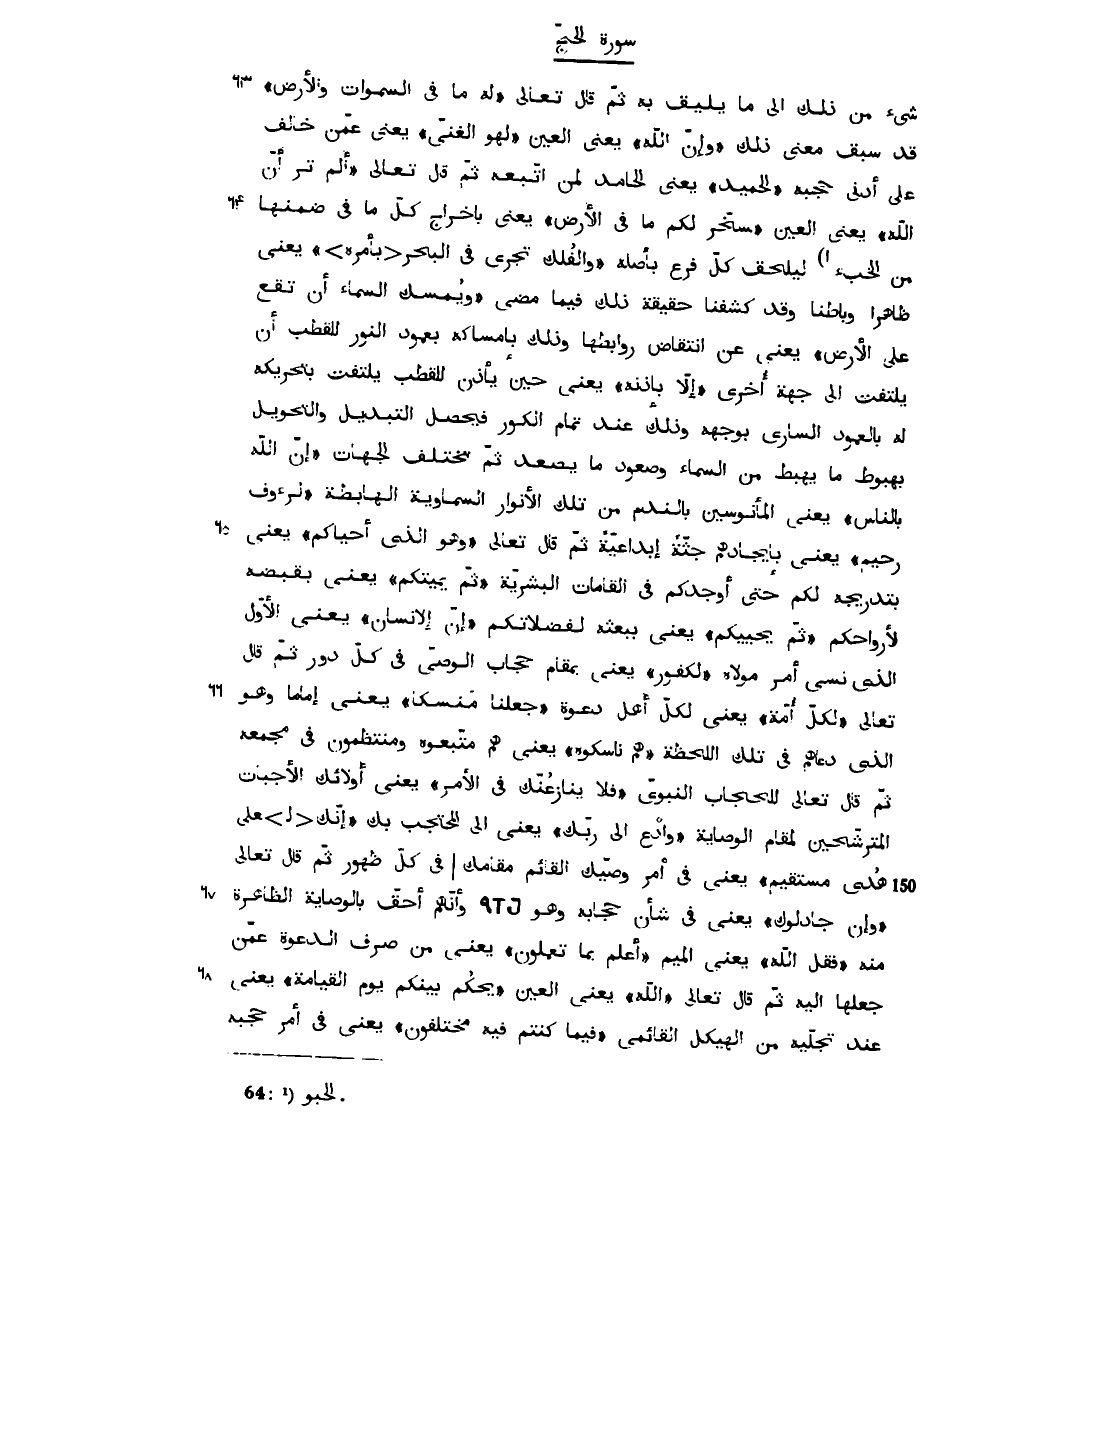 سورة الحجّ
شىء من ذلك الى ما يليق به ثمّ قال تعالى «له ما فى السموات والأرض» ٦٣
قد سبق معنى ذلك «وإنّ الله» يعنى العين «لهو الغنىّ» يعنى عمّن خالف
على أدنى حجبه «الحميد» يعنى الحامد لمن اتّبعه ثمّ قال تعالى «ألم تر أنّ
الله» يعنى العين «سخّر لكم ما فى الأرض» يعنى باخراج كلّ ما فى ضمنها ٦۴
من الخبء ¹) ليلحق كلّ فرع بأصله «والفُلك تجرى فى البحر<بأمره>» يعنى
ظاهرا وباطنا وقد كشفنا حقيقة ذلك فيما مضى «ويُمسك السماء أن تقع
على الأرض» يعنى عن انتقاض روابطها وذلك بإمساكه بعمود النور للقطب أن
يلتفت الى جهة أُخرى «إلّا بإذنه» يعنى حين يأذن للقطب يلتفت بتحريكه
له بالعمود السارى بوجهه وذلك عند تمام الكور فيحصل التبديل والتحويل
بهبوط ما يهبط من السماء وصعود ما يصعد ثمّ تختلف الجهات «إنّ الله
بالناس» يعنى المأنوسين بالندم من تلك الأنوار السماوية الهابطة «لرءوف
رحيم» يعنى بإيجادهم جثّةً إبداعيّةً ثمّ قال تعالى «وهو الذى أحياكم» يعنى ٦٥
بتدريجه لكم حتى أوجدكم فى القامات البشريّة «ثمّ يميتكم» يعنى بقبضه
لأرواحكم «ثمّ يحييكم» يعنى ببعثه لفضلاتكم «إنّ الانسان» يعنى الأوّل
الذى نسى أمر مولاه «لكفور» يعنى بمقام حجاب الوصىّ فى كلّ دور ثمّ قال
تعالى «لكلّ أُمّة» يعنى لكلّ أهل دعوة «جعلنا مَنسكا» يعنى إماما وهو ٦٦
الذى دعاهم فى تلك اللحظة «هم ناسكوه» يعنى هم متّبعوه ومنتظمون فى مجمعه
ثمّ قال تعالى للحجاب النبوىّ «فلا ينازعُنّك فى الأمر» يعنى أولائك الأجبات
المترشّحين لمقام الوصاية «وادْع الى ربّك» يعنى الى المحتجب بك «إنّك<ل>على
150 هُدى مستقيم» يعنى فى أمر وصيّك القائم مقامك | فى كلّ ظهور ثمّ قال تعالى
«وإن جادلوك» يعنى فى شأن حجابه وهو وأنّهم أحقّ بالوصاية الظاهرة ٦٧
منه «فقل الله» يعنى الميم «أعلم بما تعملون» يعنى من صرف الدعوة عمّن
جعلها اليه ثمّ قال تعالى «الله» يعنى العين «يحكُم بينكم يوم القيامة» يعنى ٦٨
عند تجلّيه من الهيكل القائمى «فيما كنتم فيه مختلفون» يعنى فى أمر حجبه
64: ¹) الخبو.